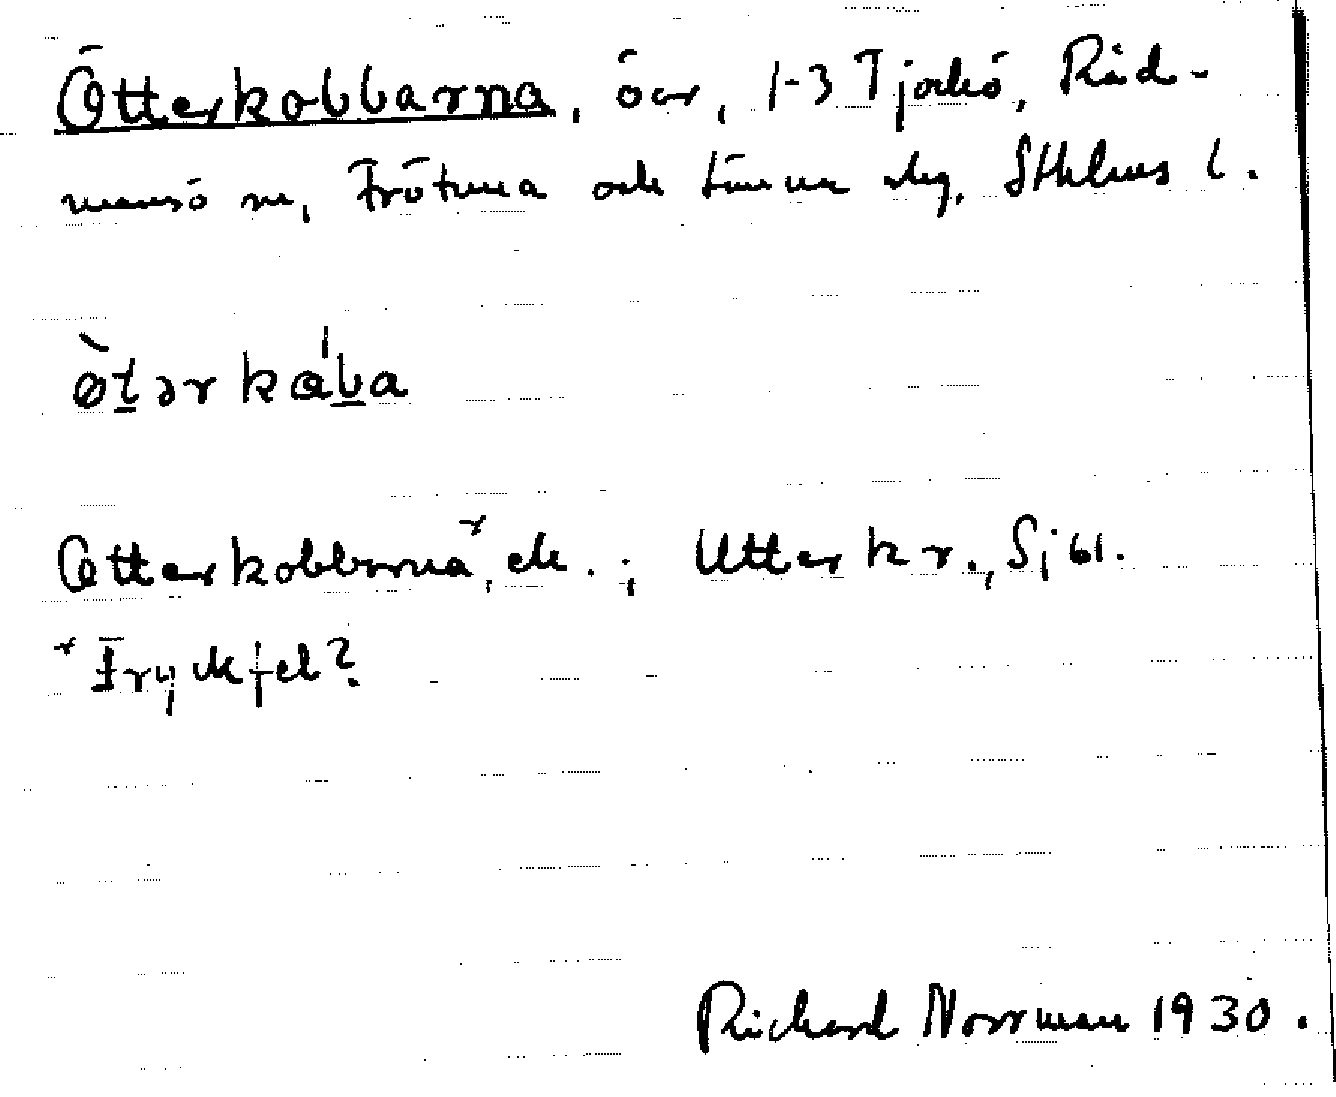 Ötterkobbarna, öar, 1-3 Tjockö, Råd-
mansö sn, Frötuna och Länna skg, Sthlms l.
ø̀tərkɑ̍ba
Otterkobbrna×, ek.; Utterkr., Sjöl.
× Tryckfel?
Richard Norrman 1930.